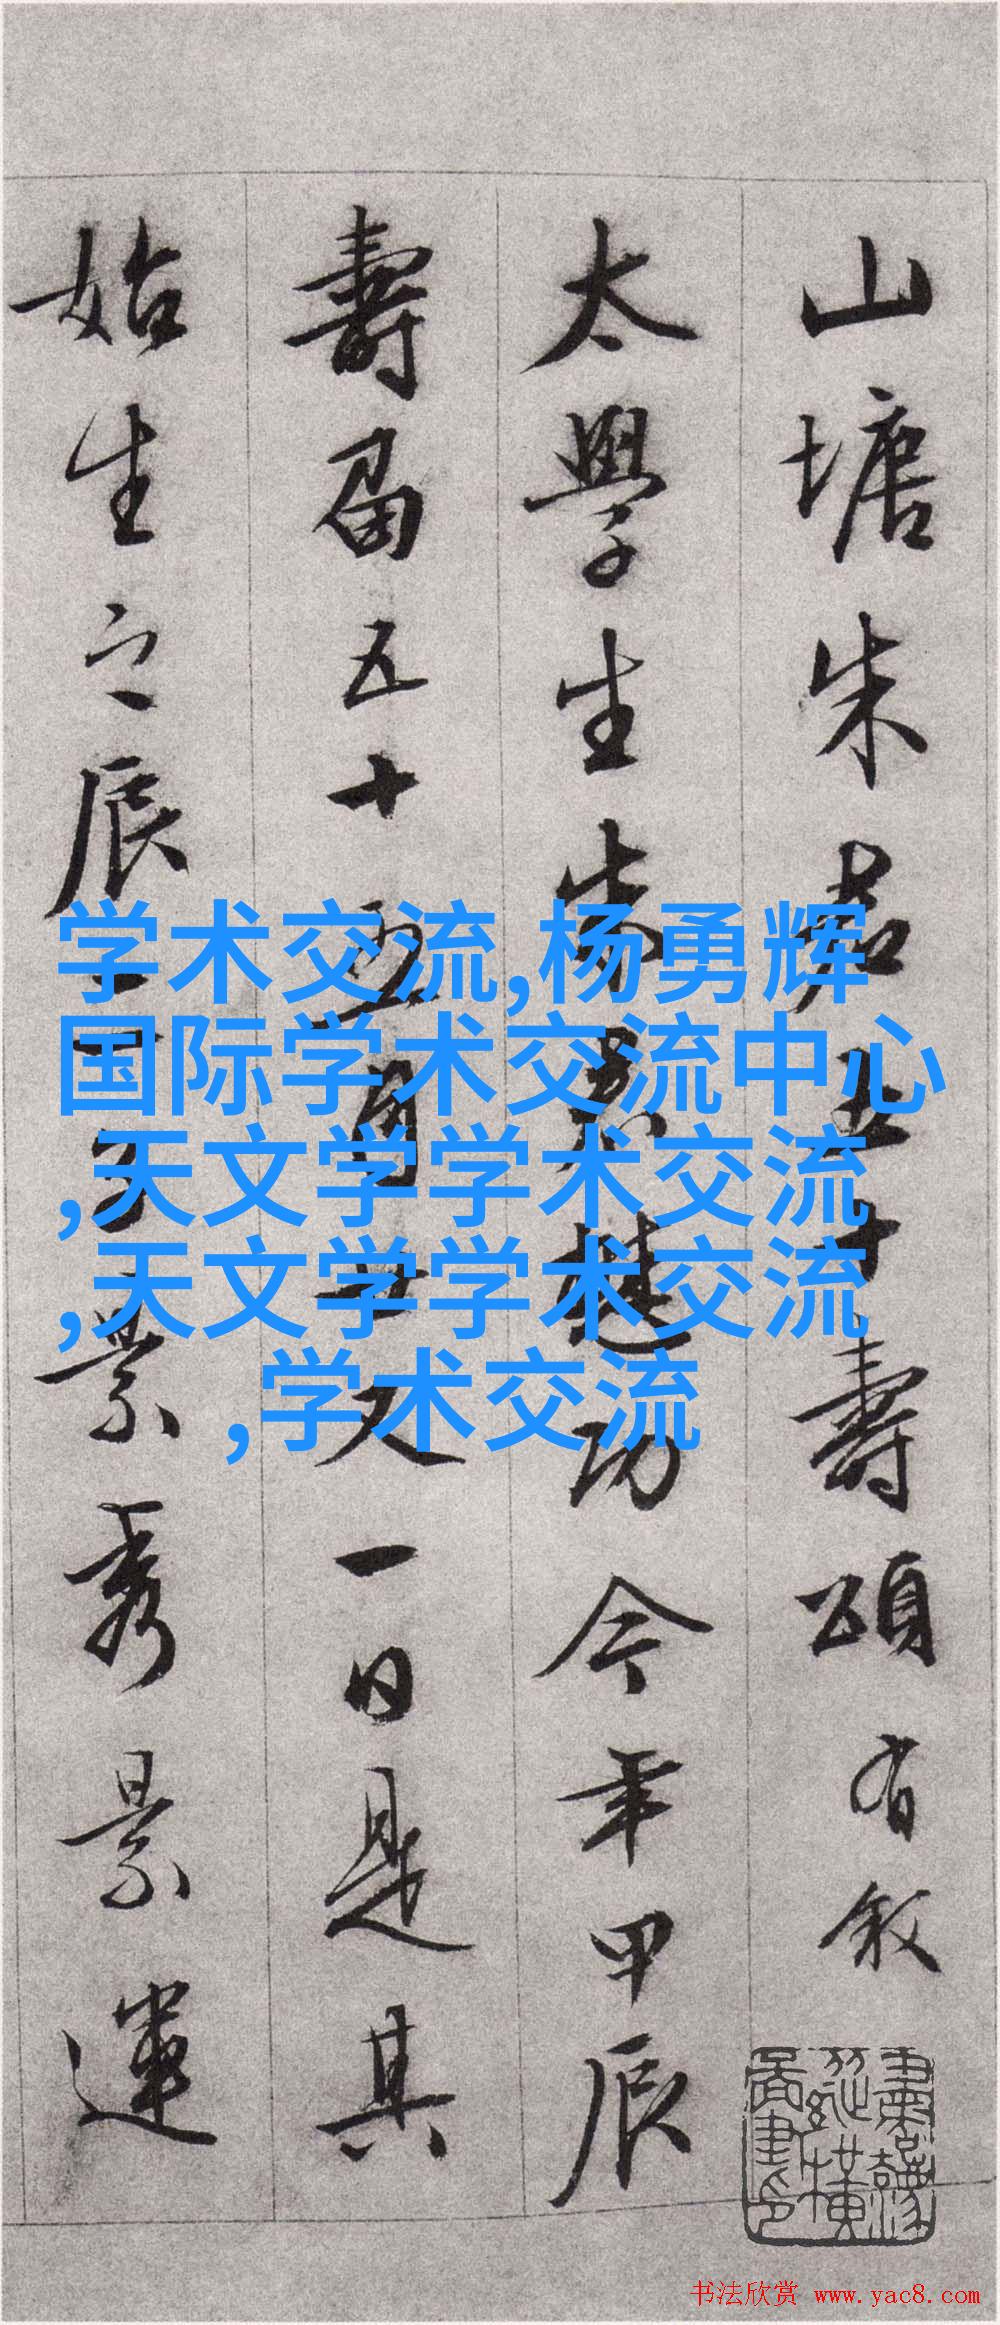 山塘朱君五十壽頌有叙
太學生君懋功今年甲辰
壽屆五十月又一日是其
始生之辰景秀景運
学术交流,杨勇辉
国际学术交流中心
,天文学学术交流
,天文学学术交流
,学术交流
书法欣赏 www.yac8.com